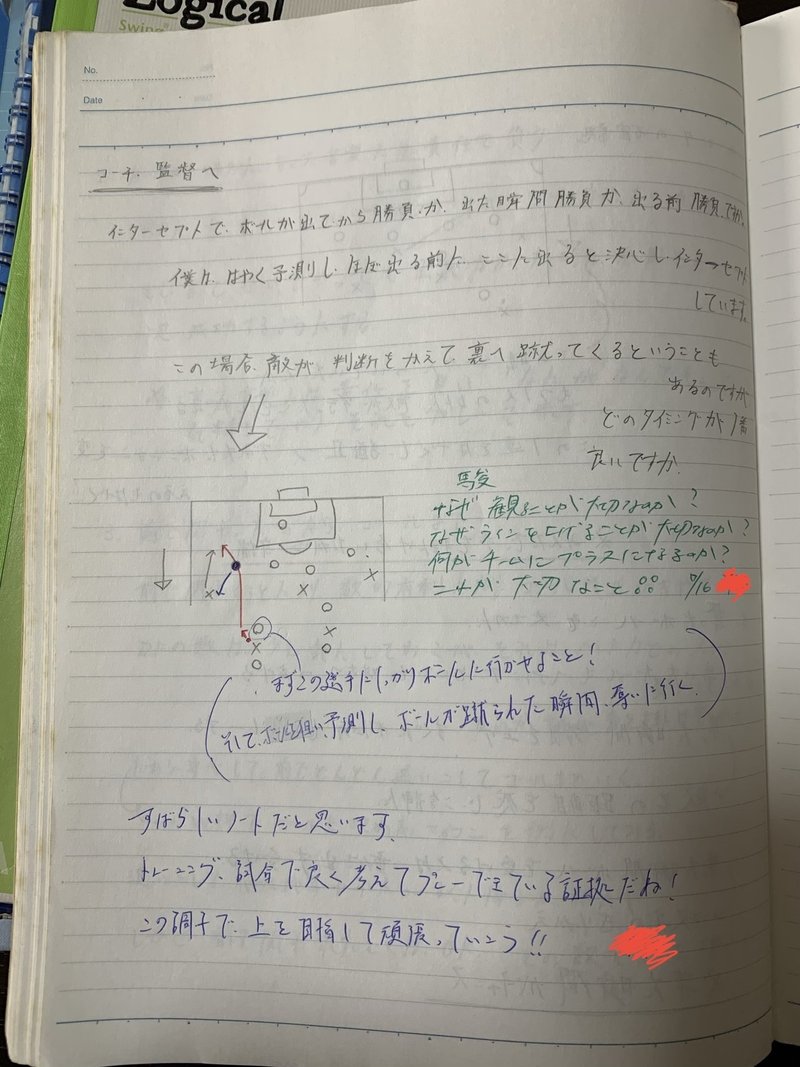 Logical
Swing
No.
Date
コーチ、監督へ
インターセプトで、ボールが出てから勝負か、出た瞬間勝負か、出る前勝負ですか。
僕は、はやく予測し、ほぼ出る前に、ここに出ると決心し、インターセプト
しています。
この場合、敵が判断をかえて、裏へ蹴ってくるということも
あるのですが
どのタイミングが1番
良いですか。
なぜ観ることが大切なのか?
なぜラインを上げることが大切なのか?
何がチームにプラスになるのか?
これが大切なこと
まずこの選手にしっかりボールに行かせること!
そして、ボールを狙い、予測し、ボールが蹴られた瞬間、奪いに行く
すばらしいノートだと思います。
トレーニング、試合で良く考えてプレーできている証拠だね!
この調子で、上を目指して頑張っていこう!!